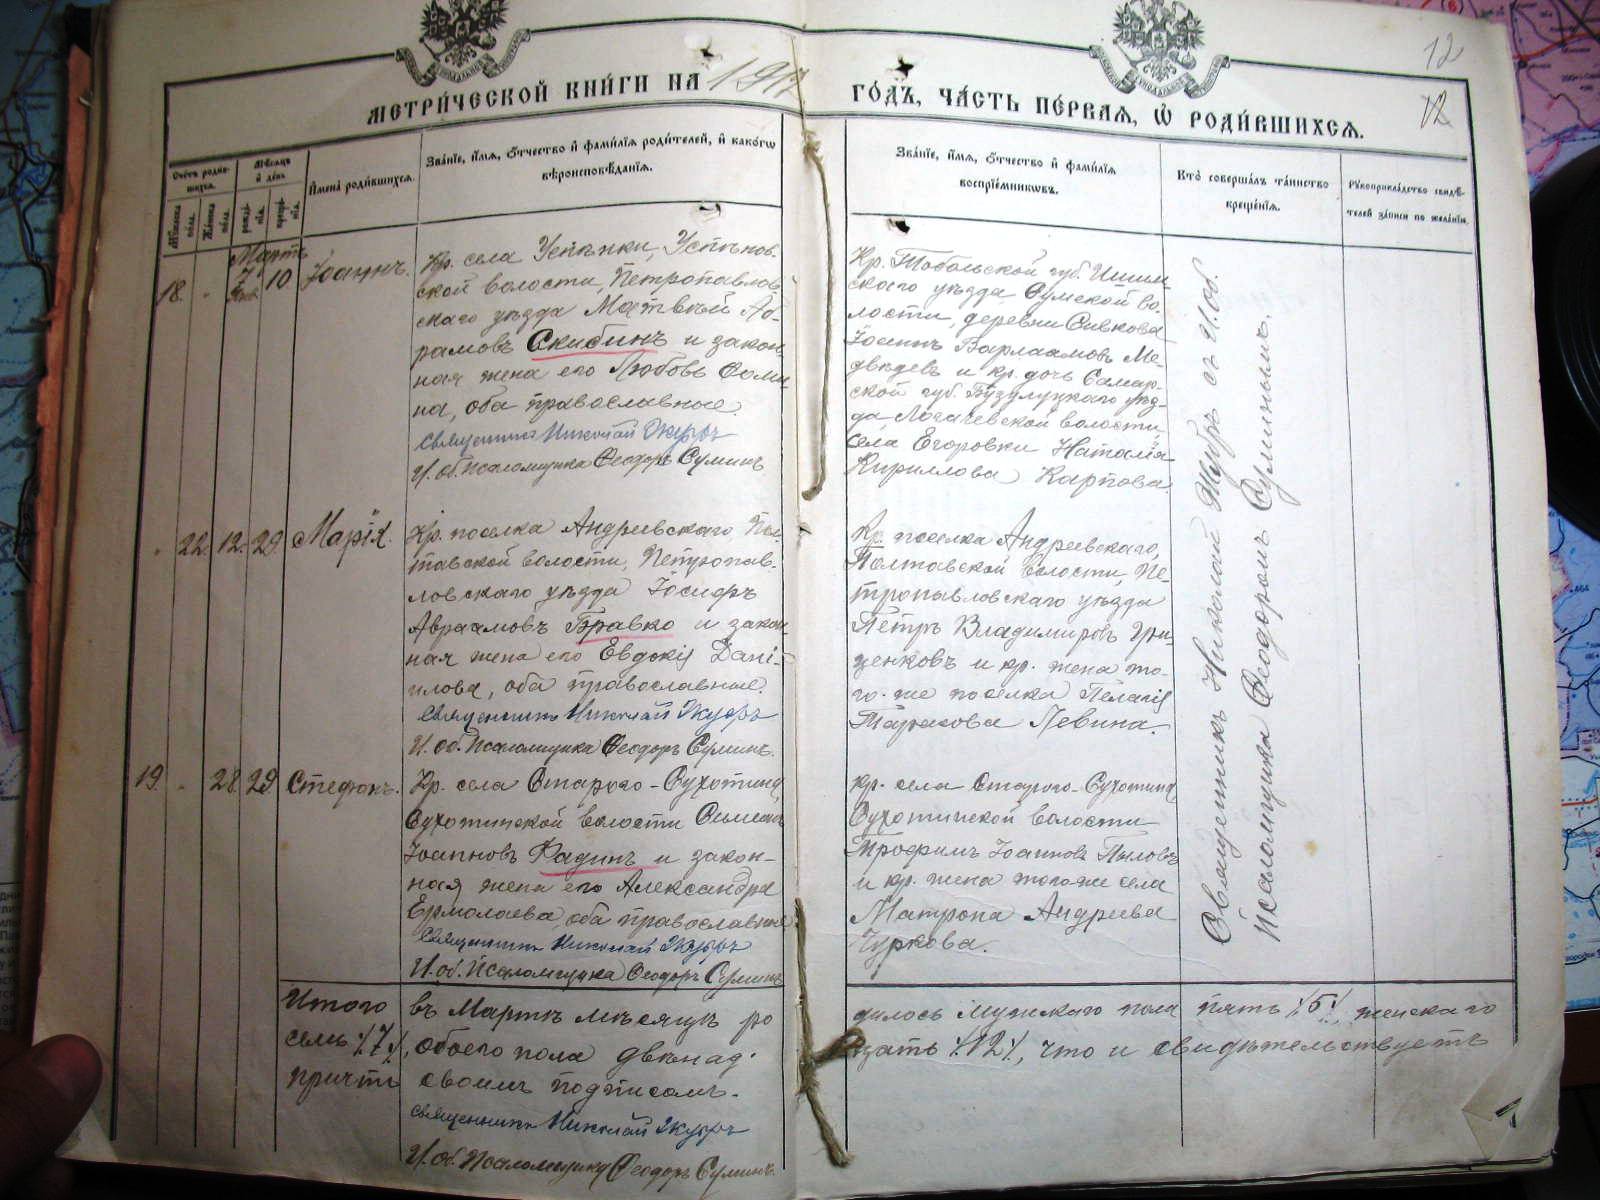 12
МЕТРИ́ЧЕСКОЙ КНИ́ГИ НА 1917 ГО́ДЪ, ЧА́СТЬ ПЕ́РВАЯ, Ѽ РОДИ́ВШИХСЯ.
12
Сче́тъ роди́в-
шихся.
Мѣ́сяцъ
и҆ де́нь
И҆мена̀ роди́вшихся.
Зва́нїе, и҆́мя, ѻ҆́тчество и҆ фами́лїя роди́телей, и҆ како́гѡ
вѣроисповѣ́данїя.
Зва́нїе, и҆́мя, ѻ҆́тчество и҆ фами́лїя
воспрїе́мникѡвъ.
Кто̀ соверша́лъ та́инство
креще́нїя.
Рꙋкоприкла́дство свидѣ́-
телей за́писи по жела́нїю.
Мартъ
18. 7 10 Іоаннъ.
Кр. села Успѣнки, Успѣнов-
ской волости, Петропавлов-
скаго уѣзда Матвѣй Аб-
рамовъ Скибинъ и закон-
ная жена его Любовь Ѳоми-
на, оба православные.
Священникъ Николай
И. об. Псаломщика Ѳеодоръ Суминъ.
Кр. Тобольской губ. Ишим-
скаго уѣзда Сумской во-
лости, деревни Сивкова
Іоаннъ Варлаамовъ Ме-
двѣдевъ и кр. дочь Самар-
ской губ. Бузулуцкаго уѣз-
да Логачевской волости,
села Егоровки Наталія
Кириллова Карпова.
Священникъ Николай
Псаломщика Ѳеодоромъ Суминымъ.
22. 12. 29. Марія.
Кр. поселка Андреевскаго, Пол-
тавской волости, Петропав-
ловскаго уѣзда Іосифъ
Авраамовъ Бравко и закон-
ная жена его Евдокія Дані-
илова, оба православные.
Священникъ Николай
И. об. Псаломщика Ѳеодоръ Суминъ.
Кр. поселка Андреевскаго,
Полтавской волости, Пе-
тропавловскаго уѣзда
Петръ Владимировъ Гри-
ценковъ и кр. жена то-
го-же поселка Пелагія
Тарасова Левина.
19. 28. 29 Стефанъ.
Кр. села Стараго-Сухотина,
Сухотинской волости Симеонъ
Іоанновъ Радинъ и закон-
ная жена его Александра
Ермолаева, оба православные
Священникъ Николай
И. об. Псаломщика Ѳеодоръ Суминъ
Кр. села Стараго-Сухотина
Сухотинской волости
Трофимъ Іоанновъ Пыловъ
и кр. жена того-же села
Матрона Андреева
Чуркова.
Итого въ Мартѣ мѣсяцѣ родилось мужскаго пола пять %5%, женскаго
семь %7%, обоего пола двѣнадцать %12%, что и свидѣтельствуетъ
причтъ своимъ подписомъ.
Священникъ Николай
И. об. Псаломщика Ѳеодоръ Суминъ.